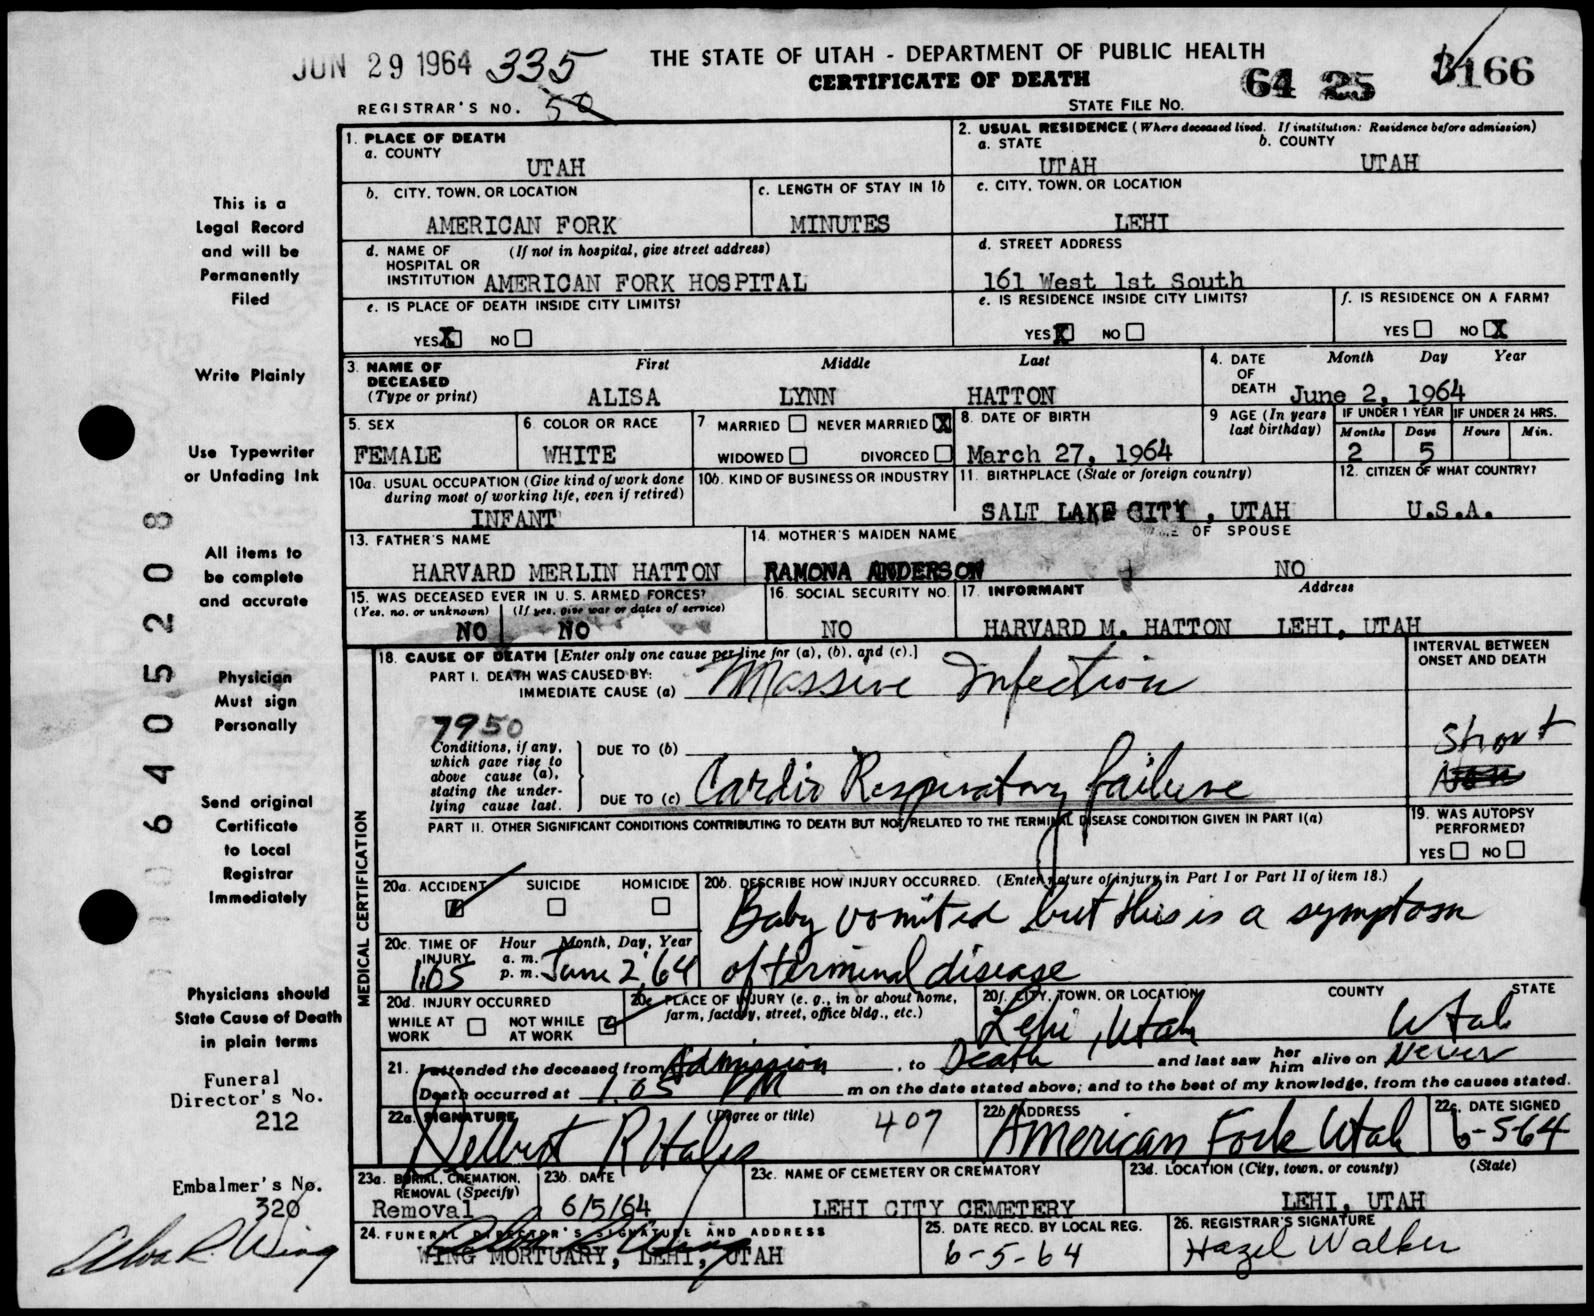 JUN 29 1964 335
THE STATE OF UTAH - DEPARTMENT OF PUBLIC HEALTH
CERTIFICATE OF DEATH
64 25 166
REGISTRAR'S NO. 50
STATE FILE NO.
1. PLACE OF DEATH
a. COUNTY
UTAH
2. USUAL RESIDENCE (Where deceased lived. If institution: Residence before admission)
a. STATE b. COUNTY
UTAH UTAH
b. CITY, TOWN, OR LOCATION
AMERICAN FORK
c. LENGTH OF STAY IN 1b
MINUTES
c. CITY, TOWN, OR LOCATION
LEHI
d. NAME OF (If not in hospital, give street address)
HOSPITAL OR
INSTITUTION AMERICAN FORK HOSPITAL
d. STREET ADDRESS
161 West 1st South
e. IS PLACE OF DEATH INSIDE CITY LIMITS?
YES X NO
e. IS RESIDENCE INSIDE CITY LIMITS?
YES X NO
f. IS RESIDENCE ON A FARM?
YES NO X
3. NAME OF DECEASED (Type or print)
First Middle Last
ALISA LYNN HATTON
4. DATE OF DEATH
Month Day Year
June 2, 1964
5. SEX
FEMALE
6. COLOR OR RACE
WHITE
7 MARRIED NEVER MARRIED X
WIDOWED DIVORCED
8. DATE OF BIRTH
March 27, 1964
9 AGE (In years last birthday)
IF UNDER 1 YEAR IF UNDER 24 HRS.
Months Days Hours Min.
2 5
10a. USUAL OCCUPATION (Give kind of work done
during most of working life, even if retired)
INFANT
10b. KIND OF BUSINESS OR INDUSTRY
11. BIRTHPLACE (State or foreign country)
SALT LAKE CITY, UTAH
12. CITIZEN OF WHAT COUNTRY?
U.S.A.
13. FATHER'S NAME
HARVARD MERLIN HATTON
14. MOTHER'S MAIDEN NAME
RAMONA ANDERSON
OF SPOUSE
NO
15. WAS DECEASED EVER IN U. S. ARMED FORCES?
(Yes, no, or unknown) (If yes, give war or dates of service)
NO NO
16. SOCIAL SECURITY NO.
NO
17. INFORMANT Address
HARVARD M. HATTON LEHI, UTAH
MEDICAL CERTIFICATION
18. CAUSE OF DEATH [Enter only one cause per line for (a), (b), and (c).]
INTERVAL BETWEEN
ONSET AND DEATH
PART I. DEATH WAS CAUSED BY:
IMMEDIATE CAUSE (a) Massive Infection
7950
Conditions, if any,
which gave rise to
above cause (a),
stating the under-
lying cause last.
DUE TO (b)
Short
DUE TO (c) Cardio Respiratory failure
PART II. OTHER SIGNIFICANT CONDITIONS CONTRIBUTING TO DEATH BUT NOT RELATED TO THE TERMINAL DISEASE CONDITION GIVEN IN PART I(a)
19. WAS AUTOPSY
PERFORMED?
YES NO
20a. ACCIDENT SUICIDE HOMICIDE
20b. DESCRIBE HOW INJURY OCCURRED. (Enter nature of injury in Part I or Part II of item 18.)
Baby vomited but this is a symptom
of terminal disease
20c. TIME OF INJURY
Hour Month, Day, Year
a. m.
p. m.
1.05 June 2, '64
20d. INJURY OCCURRED
WHILE AT WORK NOT WHILE AT WORK
20e. PLACE OF INJURY (e. g., in or about home,
farm, factory, street, office bldg., etc.)
20f. CITY, TOWN, OR LOCATION COUNTY STATE
Lehi, Utah Utah
21. I attended the deceased from Admission, to Death and last saw her him alive on Never
Death occurred at 1.05 PM m on the date stated above; and to the best of my knowledge, from the causes stated.
22a. SIGNATURE (Degree or title)
Delbert R Hales 407
22b ADDRESS
American Fork Utah
22c. DATE SIGNED
6-5-64
23a. BURIAL, CREMATION,
REMOVAL (Specify)
Removal
23b. DATE
6/5/64
23c. NAME OF CEMETERY OR CREMATORY
LEHI CITY CEMETERY
23d. LOCATION (City, town, or county) (State)
LEHI, UTAH
24. FUNERAL DIRECTOR'S SIGNATURE AND ADDRESS
WING MORTUARY, LEHI, UTAH
25. DATE RECD. BY LOCAL REG.
6-5-64
26. REGISTRAR'S SIGNATURE
Hazel Walker
This is a
Legal Record
and will be
Permanently
Filed
Write Plainly
Use Typewriter
or Unfading Ink
All items to
be complete
and accurate
Physician
Must sign
Personally
Send original
Certificate
to Local
Registrar
Immediately
Physicians should
State Cause of Death
in plain terms
Funeral
Director's No.
212
Embalmer's No.
320
Alva R. Wing
06405208